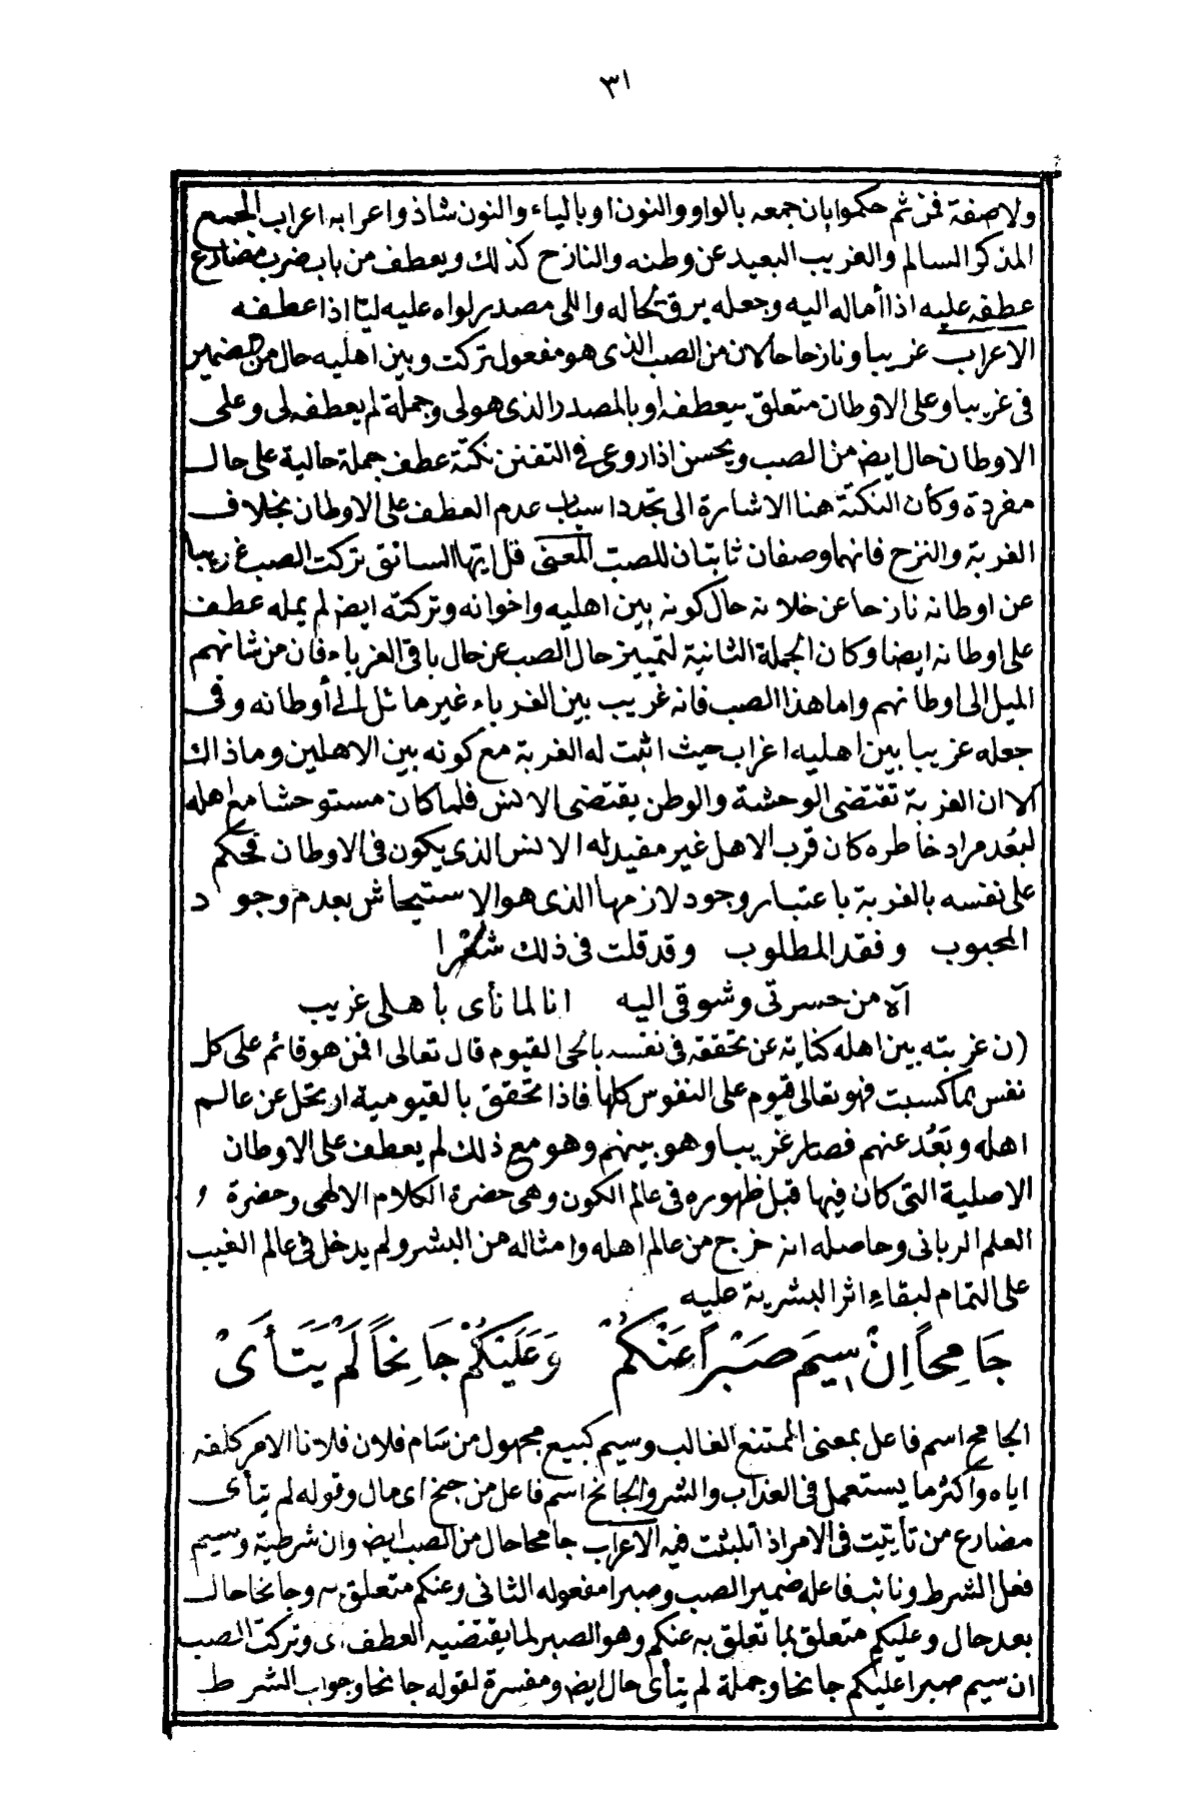 ٣١
ولا صفة فمن ثم حكموا بان جمعه بالواو والنون او بالياء والنون شاذ واعرابه اعراب الجمع
المذكر السالم والغريب البعيد عن وطنه والنازح كذلك ويعطف من باب ضرب مضارع
عطفه عليه اذا أماله اليه وجعله يرق لحاله واللى مصدر لواه عليه ليّا اذا عطفه
الاعراب غريبا ونازحا حالان من الصب الذى هو مفعول تركت وبين اهليه حال من الضمير
فى غريبا وعلى الاوطان متعلق بيعطف او بالمصدر الذى هو لى وجملة لم يعطف لى وعلى
الاوطان حال ايض من الصب ويحسن اذا روعى فى التفنن نكتة عطف جملة حالية على حال
مفردة وكأن النكتة هنا الاشارة الى تجدد اسباب عدم العطف على الاوطان بخلاف
الغربة والنزح فانهما وصفان ثابتان للصب المعنى قل ايها السائق تركت الصب غريبا
عن اوطانه نازحا عن خلانه حال كونه بين اهليه واخوانه وتركته ايض لم يمله عطف
على اوطانه ايضا وكان الجملة الثانية لتمييز حال الصب عن حال باقى الغرباء فان من شانهم
الميل الى اوطانهم واما هذا الصب فانه غريب بين الغرباء غير مائل الى أوطانه وفى
جعله غريبا بين اهليه اغراب حيث اثبت له الغربة مع كونه بين الاهلين وما ذاك
الا ان الغربة تقتضى الوحشة والوطن يقتضى الانس فلما كان مستوحشا مع اهله
لبُعد مراد خاطره كان قرب الاهل غير مفيد له الانس الذى يكون فى الاوطان فحكم
على نفسه بالغربة باعتبار وجود لازمها الذى هو الاستيحاش بعدم وجود
المحبوب وفقد المطلوب وقد قلت فى ذلك شعرا
آه من حسرتى وشوقى اليه انا لما نأى بأهلى غريب
(ن غربته بين اهله كناية عن تحققه فى نفسه بالحى القيوم قال تعالى افمن هو قائم على كل
نفس بما كسبت فهو تعالى قيوم على النفوس كلها فاذا تحقق بالقيومية ارتحل عن عالم
اهله وبَعُد عنهم فصار غريبا وهو بينهم وهو مع ذلك لم يعطف على الاوطان
الاصلية التى كان فيها قبل ظهوره فى عالم الكون وهى حضرة الكلام الالهى وحضرة
العلم الربانى وحاصله انه خرج من عالم اهله وامثاله من البشر ولم يدخل فى عالم الغيب
على التمام لبقاء اثر البشرية عليه
جَامِحاً اِنْ سِيمَ صَبْراً عَنْكُمُ وَعَلَيْكُمْ جَانِحاً لَمْ يَتَأَىْ
الجامح اسم فاعل بمعنى الممتنع الغالب وسيم كبيع مجهول من سام فلان فلانا الامر كلفه
اياه واكثر ما يستعمل فى العذاب والشر والجانح اسم فاعل من جنح اى مال وقوله لم يتأى
مضارع من تأييت فى الامر اذا تلبثت فيه الاعراب جامحا حال من الصب ايض وان شرطية وسيم
فعل الشرط ونائب فاعله ضمير الصب وصبرا مفعوله الثانى وعنكم متعلق به وجانحا حال
بعد حال وعليكم متعلق بما تعلق به عنكم وهو الصبر لما يقتضيه العطف اى وتركت الصب
ان سيم صبرا عليكم جانحا وجملة لم يتأى حال ايض ومفسرة لقوله جانحا وجواب الشرط